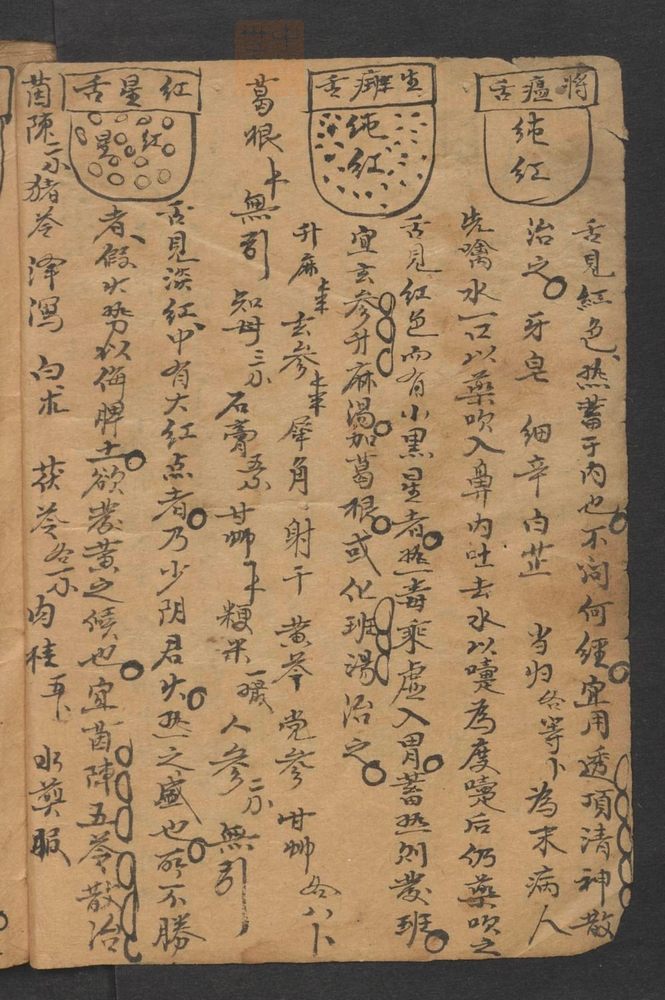 将瘟舌
纯红
舌見紅色热蓄于内也不问何經宜用透項清神散
治之 牙皂 细辛 白芷 当归各等卜为末病人
先噙水一口以藥吹入鼻内吐去水以嚏為度嚏后仍藥吹之
生癍舌
纯红
舌見红色而有小黑星者热毒乘虚入胃蓄热则發班
宜玄参升麻湯加葛根或化班湯治之
升麻 玄参 犀角 射干 黄芩 党参 甘艸各八卜
葛根 無引 知母三分 石膏 甘艸 粳米一撮 人参二分 無引
红星舌
红星
舌見淡红中有大红点者乃少阴君火热之盛也所不勝
者假火势以侮脾土欲發黄之候也宜茵陳五苓散治
茵陳二分猪苓 泽瀉 白朮 茯苓各一分肉桂五卜 水煎服